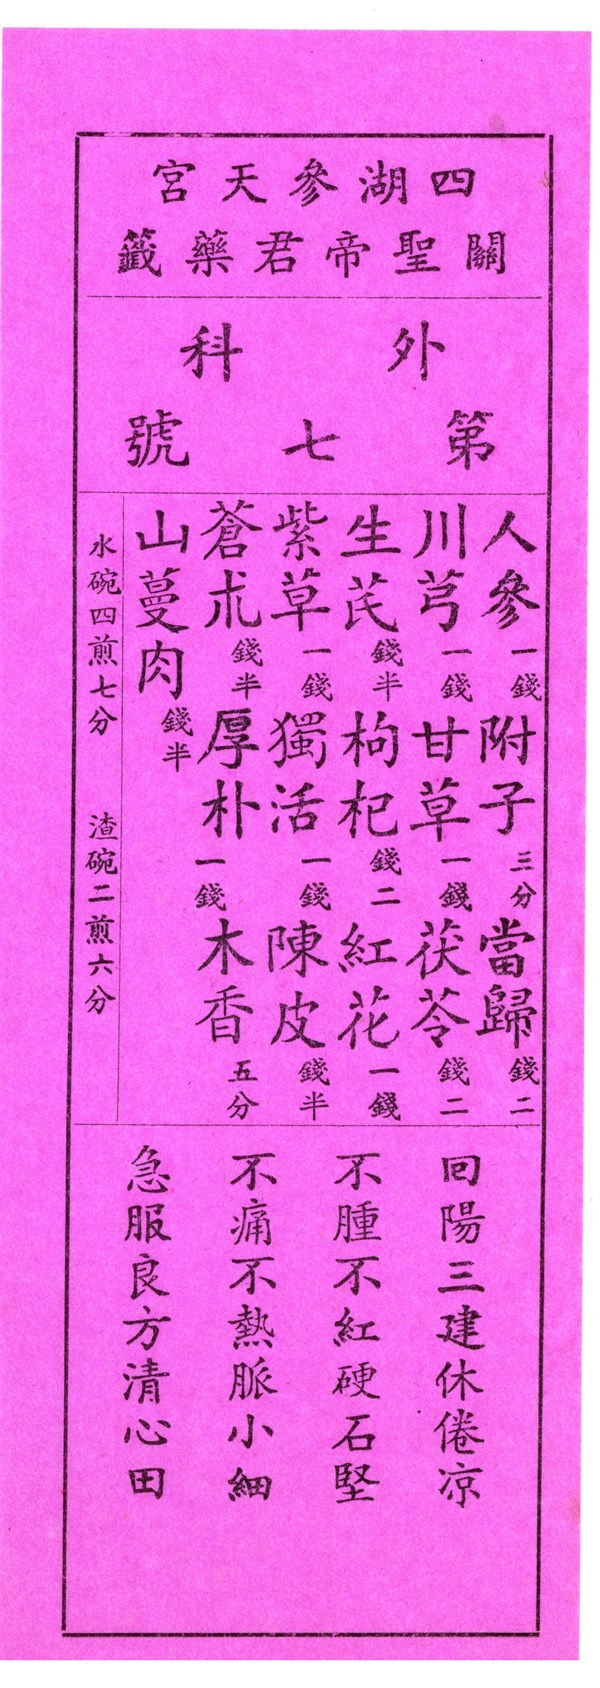 四湖參天宮
關聖帝君藥籤
外科
第七號
人參一錢附子三分當歸錢二
川芎一錢甘草一錢茯苓錢二
生芪錢半枸杞錢二紅花一錢
紫草一錢獨活一錢陳皮錢半
蒼朮錢半厚朴一錢木香五分
山蔓肉錢半
水碗四煎七分 渣碗二煎六分
回陽三建休倦凉
不腫不紅硬石堅
不痛不熱脈小細
急服良方清心田